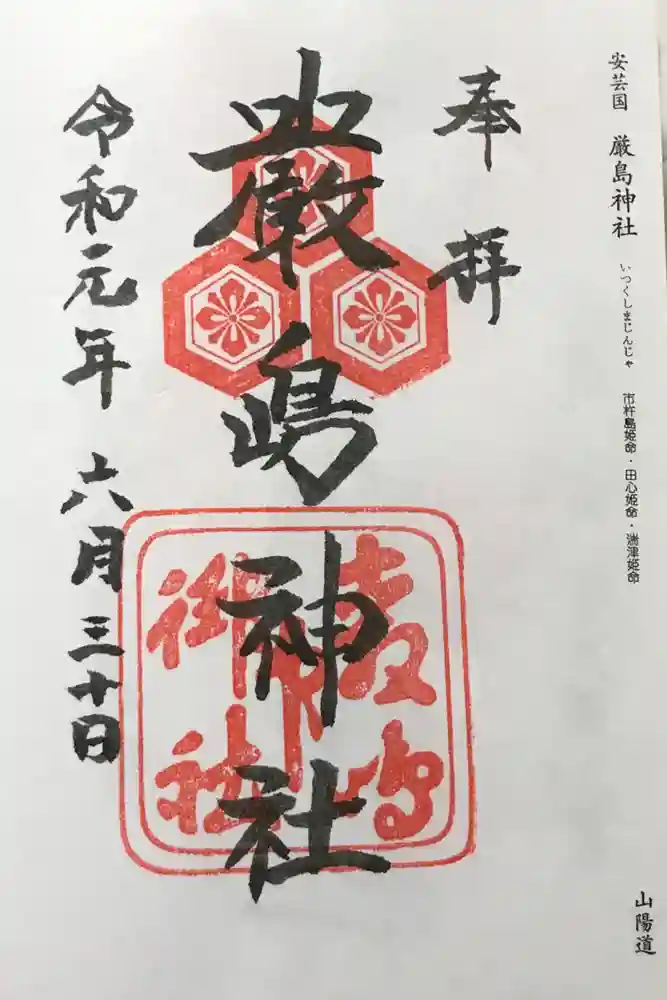 安芸国 厳島神社 いつくしまじんじゃ 市杵島姫命・田心姫命・湍津姫命
山陽道
奉拝
嚴嶋神社
令和元年六月三十日